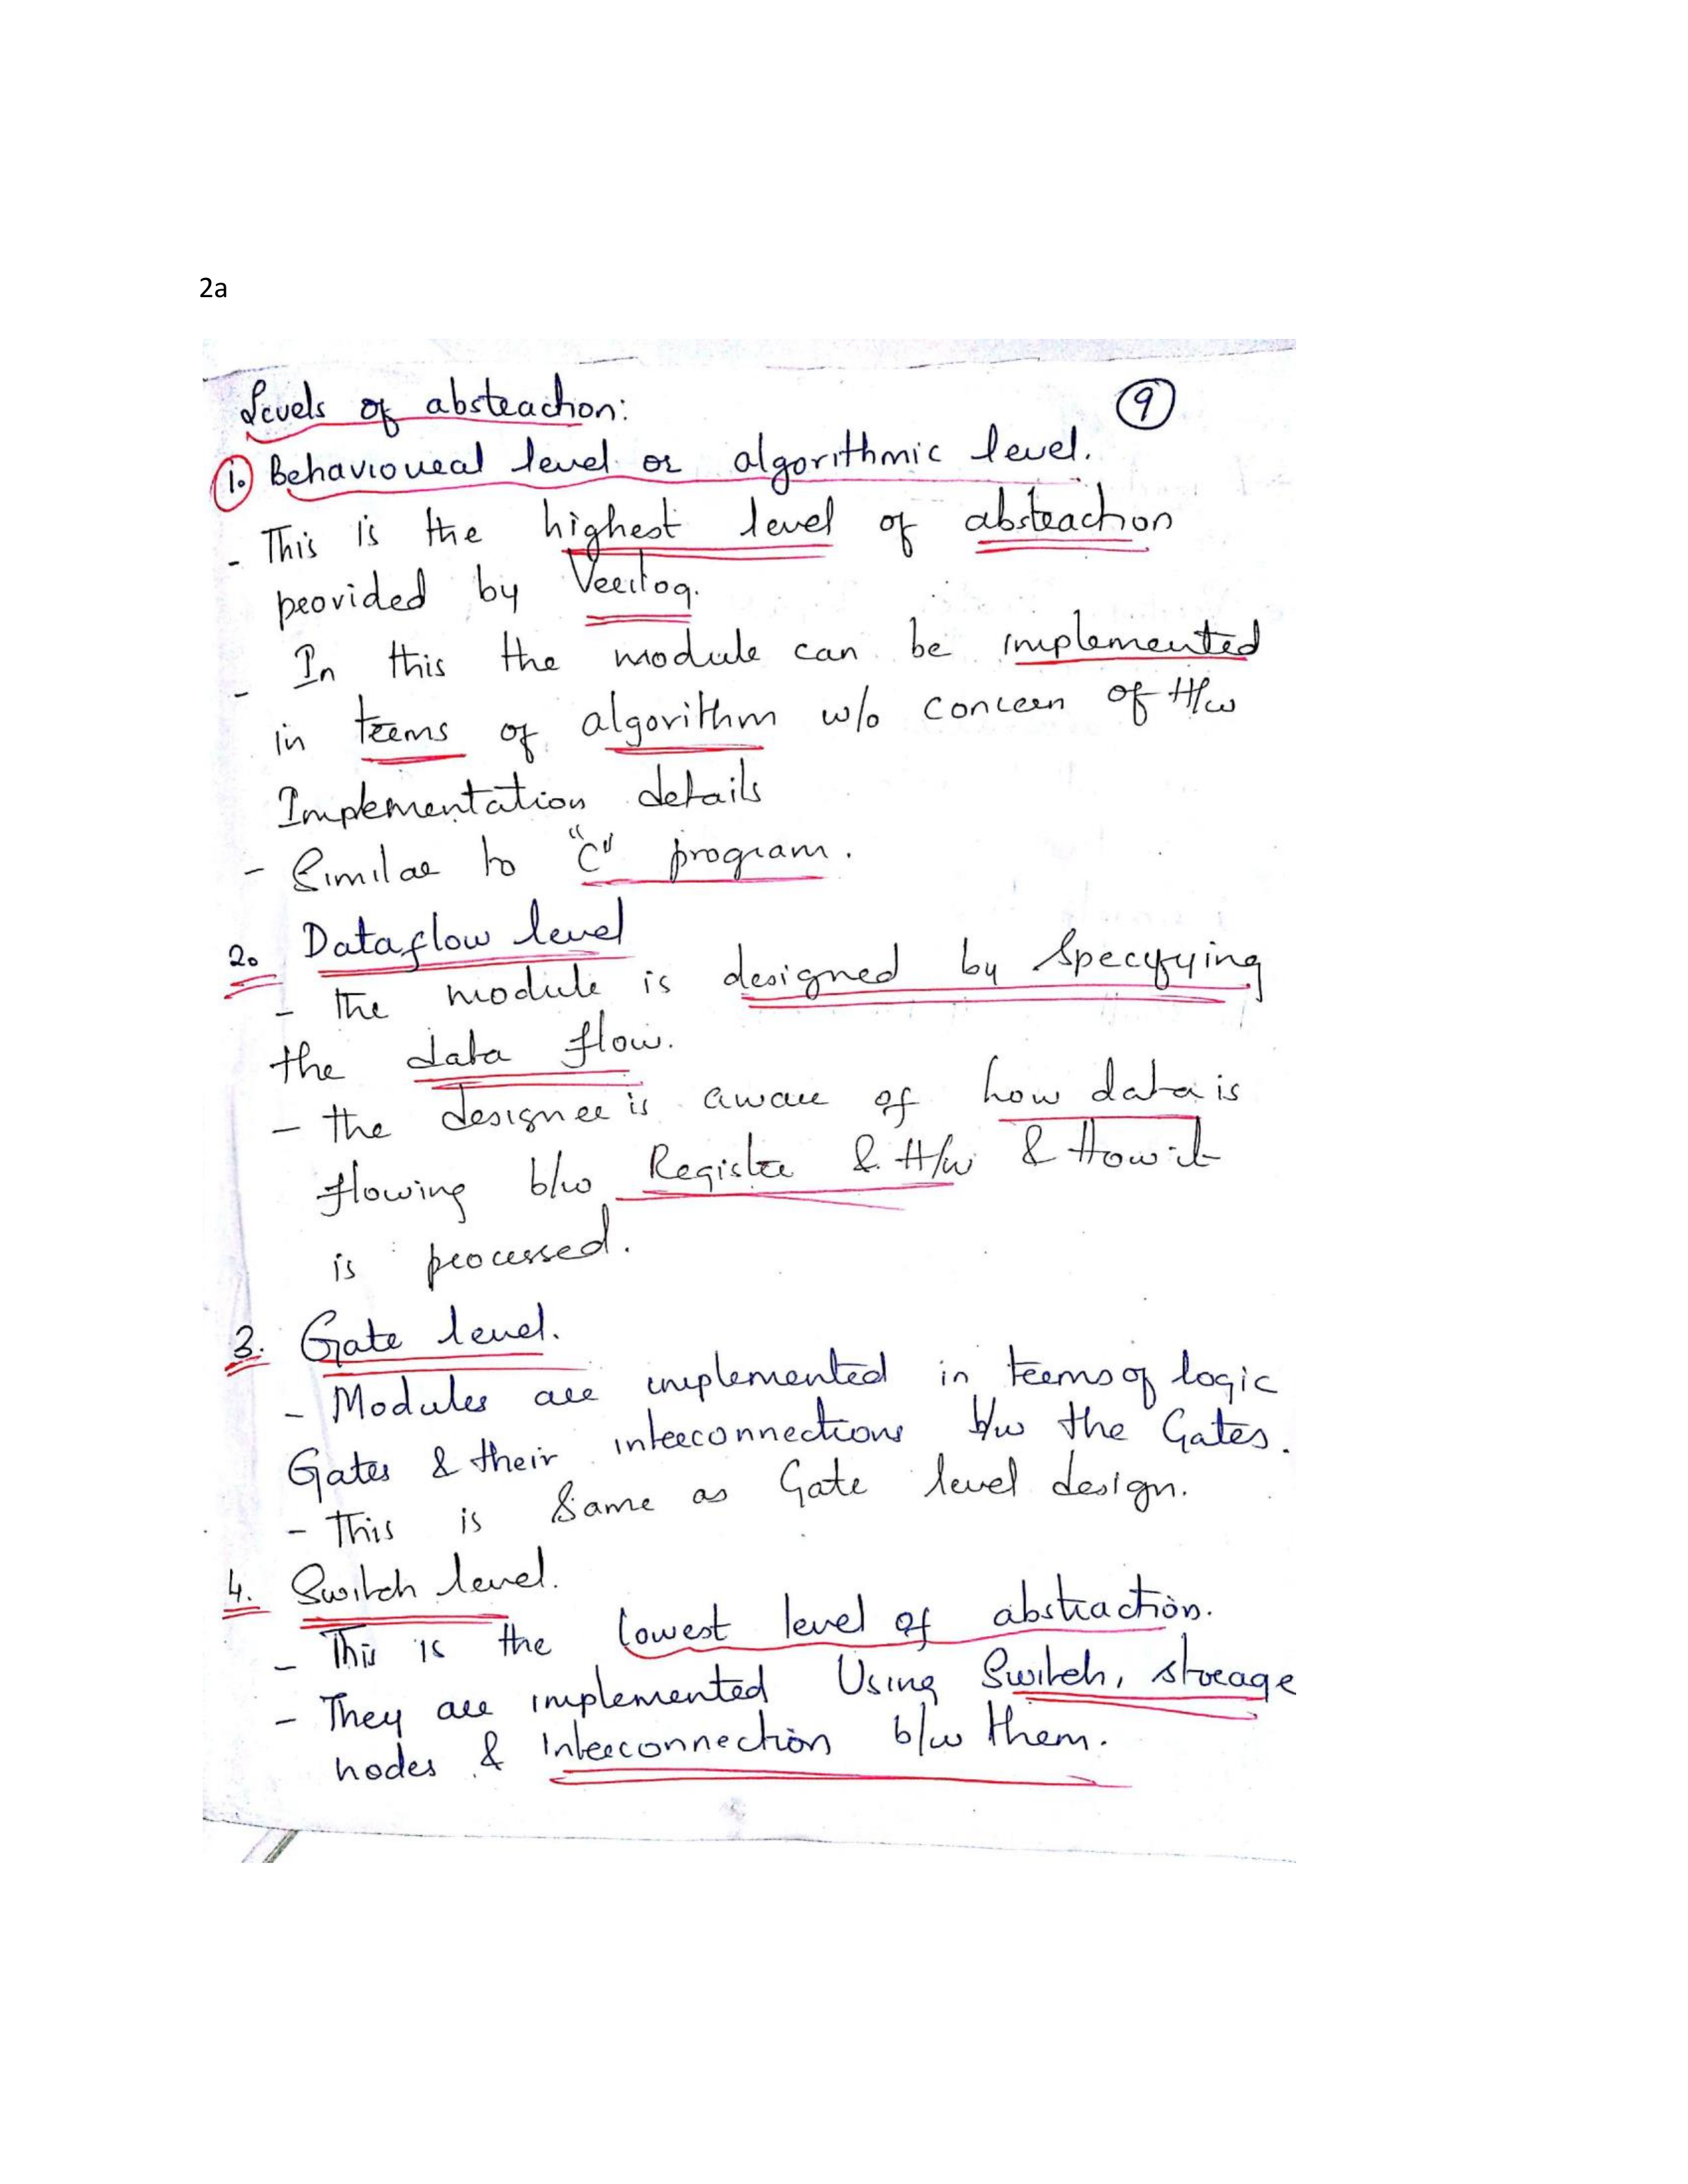 2a
Levels of abstraction:
9
1. Behavioural level or algorithmic level.
- This is the highest level of abstraction
provided by Verilog.
- In this the module can be implemented
in terms of algorithm w/o concern of H/w
Implementation details
- Similar to "C" program.
2. Dataflow level
- the module is designed by specifying
the data flow.
- the designer is aware of how data is
flowing b/w Register & H/w & How it
is processed.
3. Gate level.
- Modules are implemented in terms of logic
Gates & their interconnections b/w the Gates.
- This is same as Gate level design.
4. Switch level.
- This is the lowest level of abstraction.
- They are implemented Using Switch, storage
nodes & Interconnection b/w them.